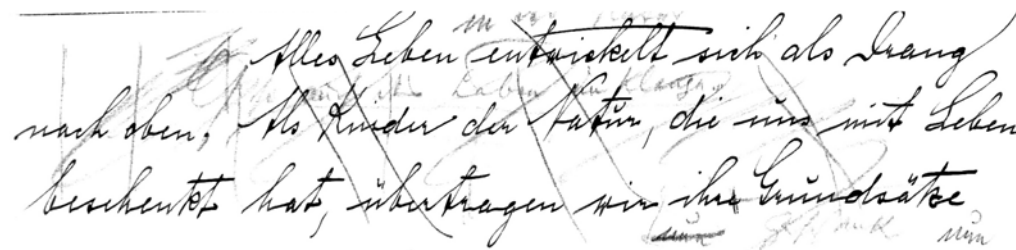 in der Natur
Alles Leben entwickelt sich als Drang
nach oben. Als Kinder der Natur, die uns mit Leben
beschenkt hat, übertragen wir ihre Grundsätze
nun nun